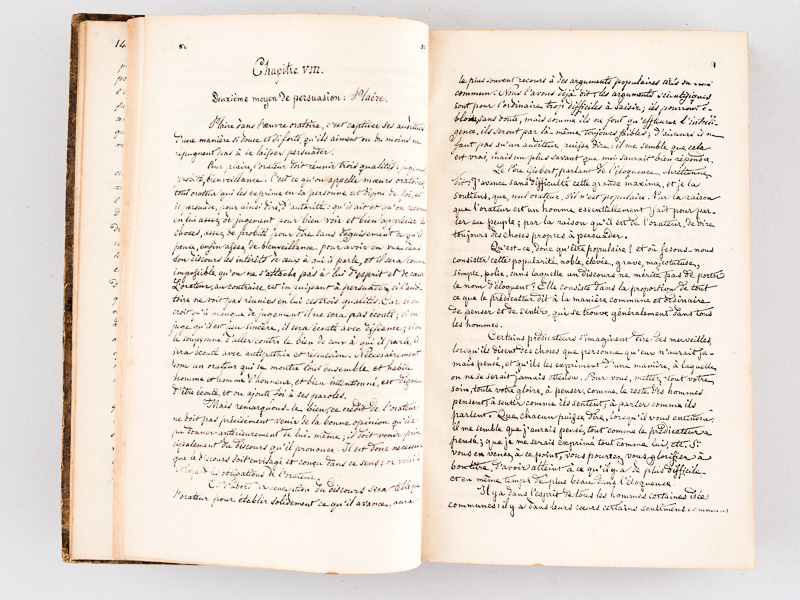 14
80
Chapitre VIII.
Deuxième moyen de persuasion : Plaire.
Plaire dans l'œuvre oratoire, c'est captiver ses auditeurs
d'une manière si douce et si forte, qu'ils aiment ou du moins ne
répugnent pas à se laisser persuader.
Pour plaire, l'orateur doit réunir trois qualités : jugement
probité, bienveillance. C'est ce qu'on appelle mœurs oratoires,
tout orateur qui les exprime en sa personne est digne de foi, et
il persuade, pour ainsi dire, d'autorité : qu'il ait et qu'on reconnaisse
en lui assez de jugement pour bien voir et bien apprécier les
choses, assez de probité pour dire sans déguisement ce qu'il
pense, enfin assez de bienveillance pour avoir en vue dans
son discours les intérêts de ceux à qui il parle, et il sera
impossible qu'on ne s'attache pas à lui d'esprit et de cœur.
L'orateur, au contraire, est impuissant à persuader, si l'audi-
toire ne voit pas réunies en lui ces trois qualités. Car si on
croit qu'il manque de jugement il ne sera pas écouté ; si on
juge qu'il est peu sincère, il sera écouté avec défiance ; si on
le soupçonne d'aller contre le bien de ceux à qui il parle, il
sera écouté avec antipathie et répulsion. Nécessairement
donc un orateur qui se montre tout ensemble et habile
homme et homme d'honneur, et bien intentionné, est digne
d'être écouté, et on ajoute foi à ses paroles.
Mais remarquons le bien, ce crédit de l'orateur
ne doit pas précisément venir de la bonne opinion qu'il a
pu donner antérieurement de lui même ; il doit venir prin-
cipalement du discours qu'il prononce. Il est donc nécessaire
que le discours soit envisagé et conçu dans ce sens : or voici
les obligations de l'orateur.
Et d'abord la conception du discours sera telle que
l'orateur, pour établir solidement ce qu'il avance, aura
le plus souvent recours à des arguments populaires tirés du sens
commun. Nous l'avons déjà dit : les arguments scientifiques
sont pour l'ordinaire trop difficiles à saisir ; ils pourront é-
blouir, sans doute, mais comme ils ne font qu'effleurer l'intelli-
gence, ils seront par là-même toujours faibles ; d'ailleurs il ne
faut pas qu'un auditeur puisse dire : il me semble que cela
est vrai, mais un plus savant que moi saurait bien répondre.
Le Père Gisbert, parlant de l'éloquence chrétienne,
dit : J'avance sans difficulté cette grande maxime, et je la
soutiens, que nul orateur, s'il n'est populaire. Par la raison
que l'orateur est un homme essentiellement fait pour par-
ler au peuple ; par la raison qu'il est de l'orateur, de dire
toujours des choses propres à persuader.
Qu'est-ce donc qu'être populaire ? et où ferons-nous
consister cette popularité noble, élevée, grave, majestueuse,
simple, polie, sans laquelle un discours ne mérite pas de porter
le nom d'éloquent ? Elle consiste dans la proportion de tout
ce que le prédicateur dit à la manière commune et ordinaire
de penser et de sentir, qui se trouve généralement dans tous
les hommes.
Certains prédicateurs s'imaginent dire des merveilles,
lorsqu'ils disent des choses que personne qu'eux n'aurait ja-
mais pensé, et qu'ils les expriment d'une manière, à laquelle
on ne se serait jamais attendu. Pour vous, mettez tout votre
soin, toute votre gloire, à penser, comme le reste des hommes
pensent, à sentir comme ils sentent, à parler comme ils
parlent. Que chacun puisse dire, lorsqu'il vous entendra :
il me semble que j'aurais pensé, tout comme le prédicateur a
pensé ; que je me serais exprimé tout comme lui, etc. Si
vous en venez à ce point, vous pourrez vous glorifier à
bon titre, d'avoir atteint à ce qu'il y a de plus difficile
et en même temps de plus beau dans l'éloquence.
Il y a dans l'esprit de tous les hommes certaines idées
communes : il y a dans leurs cœurs certains sentiments communs